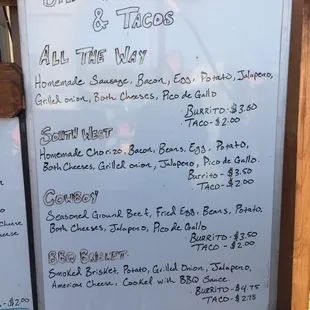 & TACOS
ALL THE WAY
Homemade Sausage, Bacon, Egg, Potato, Jalapeno,
Grilled onion, Both Cheeses, Pico de Gallo
BURRITO - $3.50
TACO - $2.00
SOUTH WEST
Homemade Chorizo, Bacon, Beans, Egg, Potato,
Both Cheeses, Grilled onion, Jalapeno, Pico de Gallo.
Burrito - $3.50
TACO - $2.00
COWBOY
Seasoned Ground Beef, Fried Egg, Beans, Potato,
Both Cheeses, Jalapeno, Pico de Gallo
BURRITO - $3.50
TACO - $2.00
BBQ
Smoked Brisket, Potato, Grilled Onion, Jalapeno,
American Cheese, Cooked with BBQ Sauce.
BURRITO - $4.75
TACO - $2.75
Cheese
- $2.00